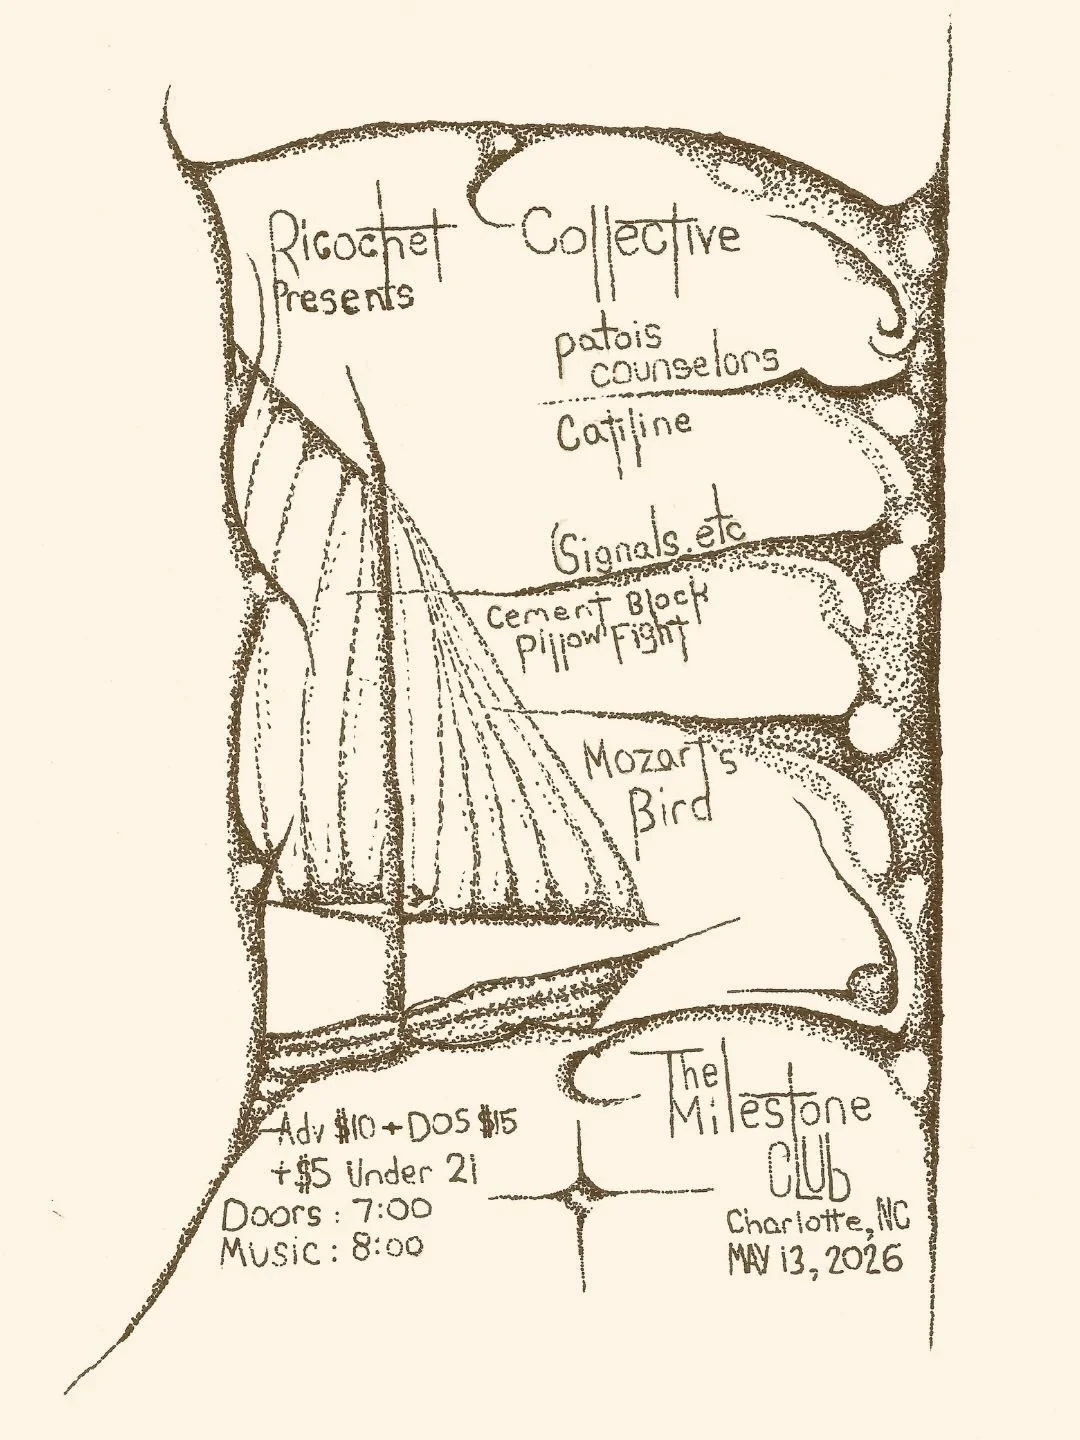 Ricochet Collective
Presents
patois
counselors
Catiline
Signals.etc
Cement Block
Pillow Fight
Mozart's
Bird
The
Milestone
Club
Charlotte, NC
MAY 13, 2026
Adv $10 + DOS $15
+$5 Under 21
Doors : 7:00
Music : 8:00